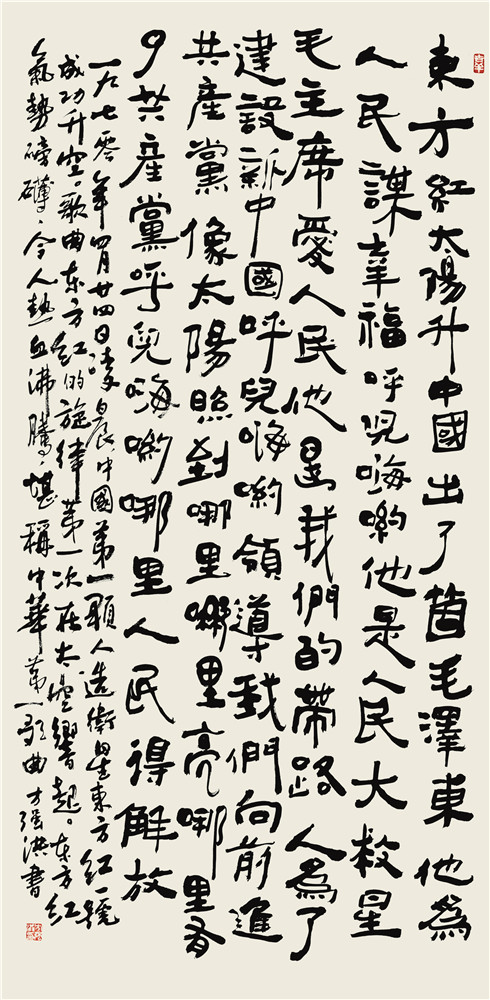 東方紅太陽升中國出了箇毛澤東他為
人民謀幸福呼児嗨喲他是人民大救星
毛主席愛人民他是我們的帶路人為了
建設新中國呼兒嗨喲領導我們向前進
共產黨像太陽照到哪里哪里亮哪里有
了共產黨呼兒嗨喲哪里人民得解放
一九七零年四月廿四日凌晨中國第一顆人造衛星東方红一號
成功升空。歌曲东方红的旋律第一次在太空響起。东方红
氣勢磅礴、令人熱血沸騰、堪稱中華第一歌曲方强洪書